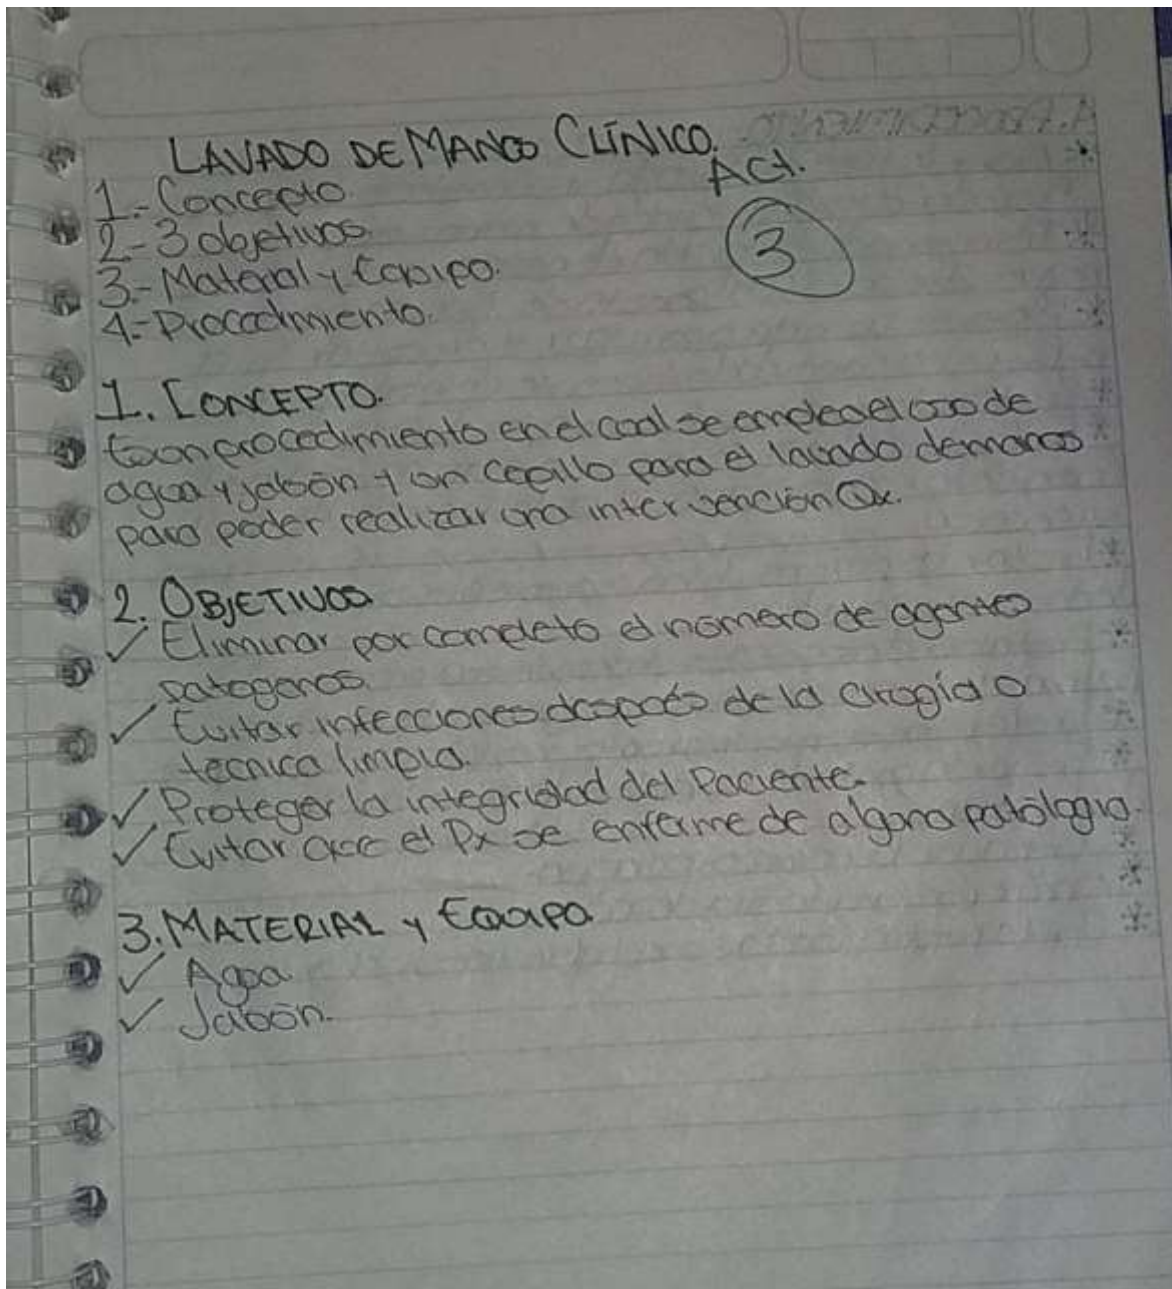 LAVADO DE MANOS CLÍNICO.
Act.
3
1.- Concepto.
2.- 3 objetivos.
3.- Material y Equipo.
4.- Procedimiento.
1. CONCEPTO.
Es un procedimiento en el cual se emplea el uso de
agua y jabón y un cepillo para el lavado de manos
para poder realizar una intervención Qx.
2. OBJETIVOS
✓ Eliminar por completo el número de agentes
patogenos.
✓ Evitar infecciones después de la cirugía o
tecnica limpia.
✓ Proteger la integridad del Paciente.
✓ Evitar que el Px se enferme de alguna patología.
3. MATERIAL y EQUIPO
✓ Agua
✓ Jabón.